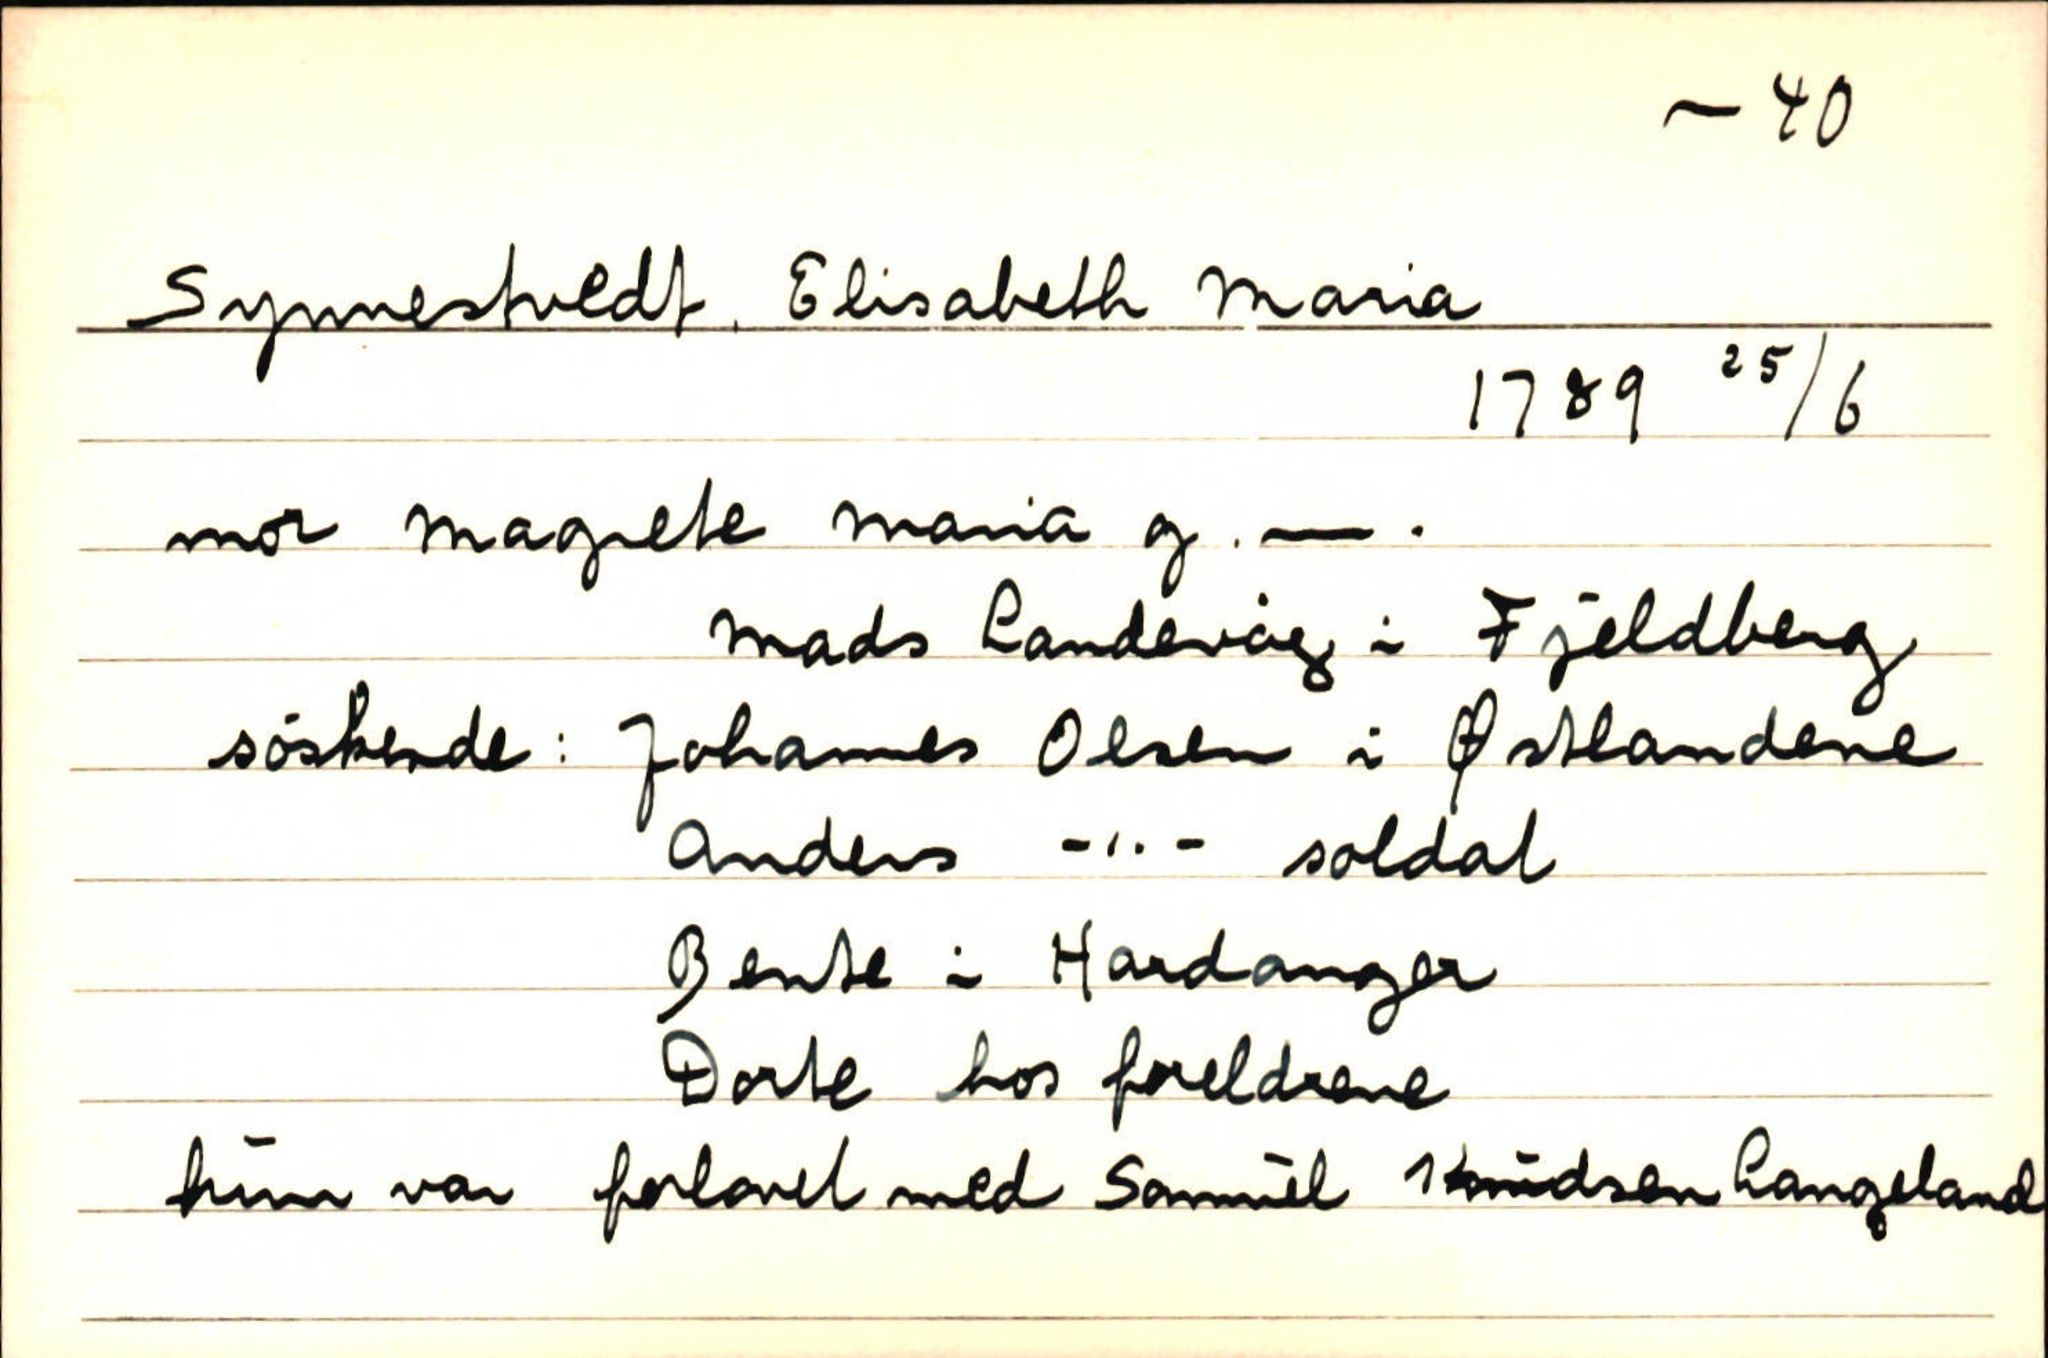 ~ 40
Synnestvedt, Elisabeth Maria
1789 25/6
mor Magrete Maria g. — .
Mads Landevåg i Fjeldberg
søskende: Johannes Olsen i Østlandene
Anders -"- soldat
Bente i Hardanger
Dorte hos foreldrene
hun var forlovet med Samuel Knudsen Langeland